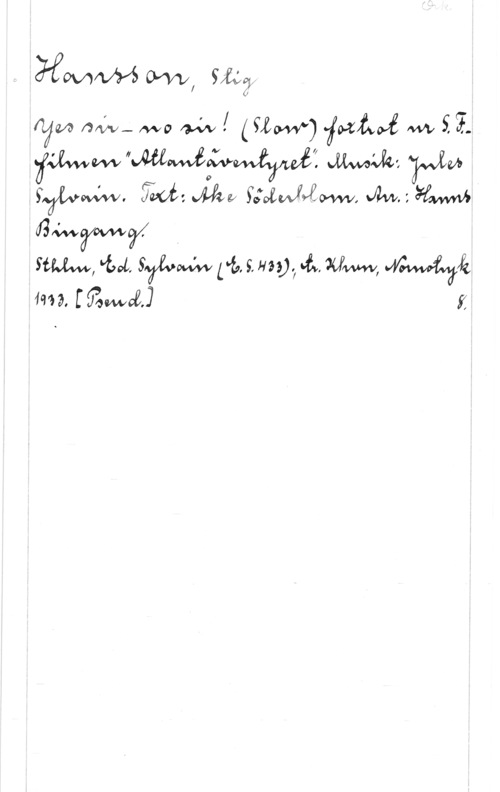 Ork.
Hansson, Stig
Yes sir - no sir! (Slow) foxtrot ur S.F.-
filmen "Atlantäventyret". Musik: Jules
Sylvain. Text: Åke Söderblom. Arr.: Hanns
Bingang.
Sthlm, Ed. Sylvain (E.S. 433), tr. Khvn, Nornotryk
1933. [Pseud.] 8.